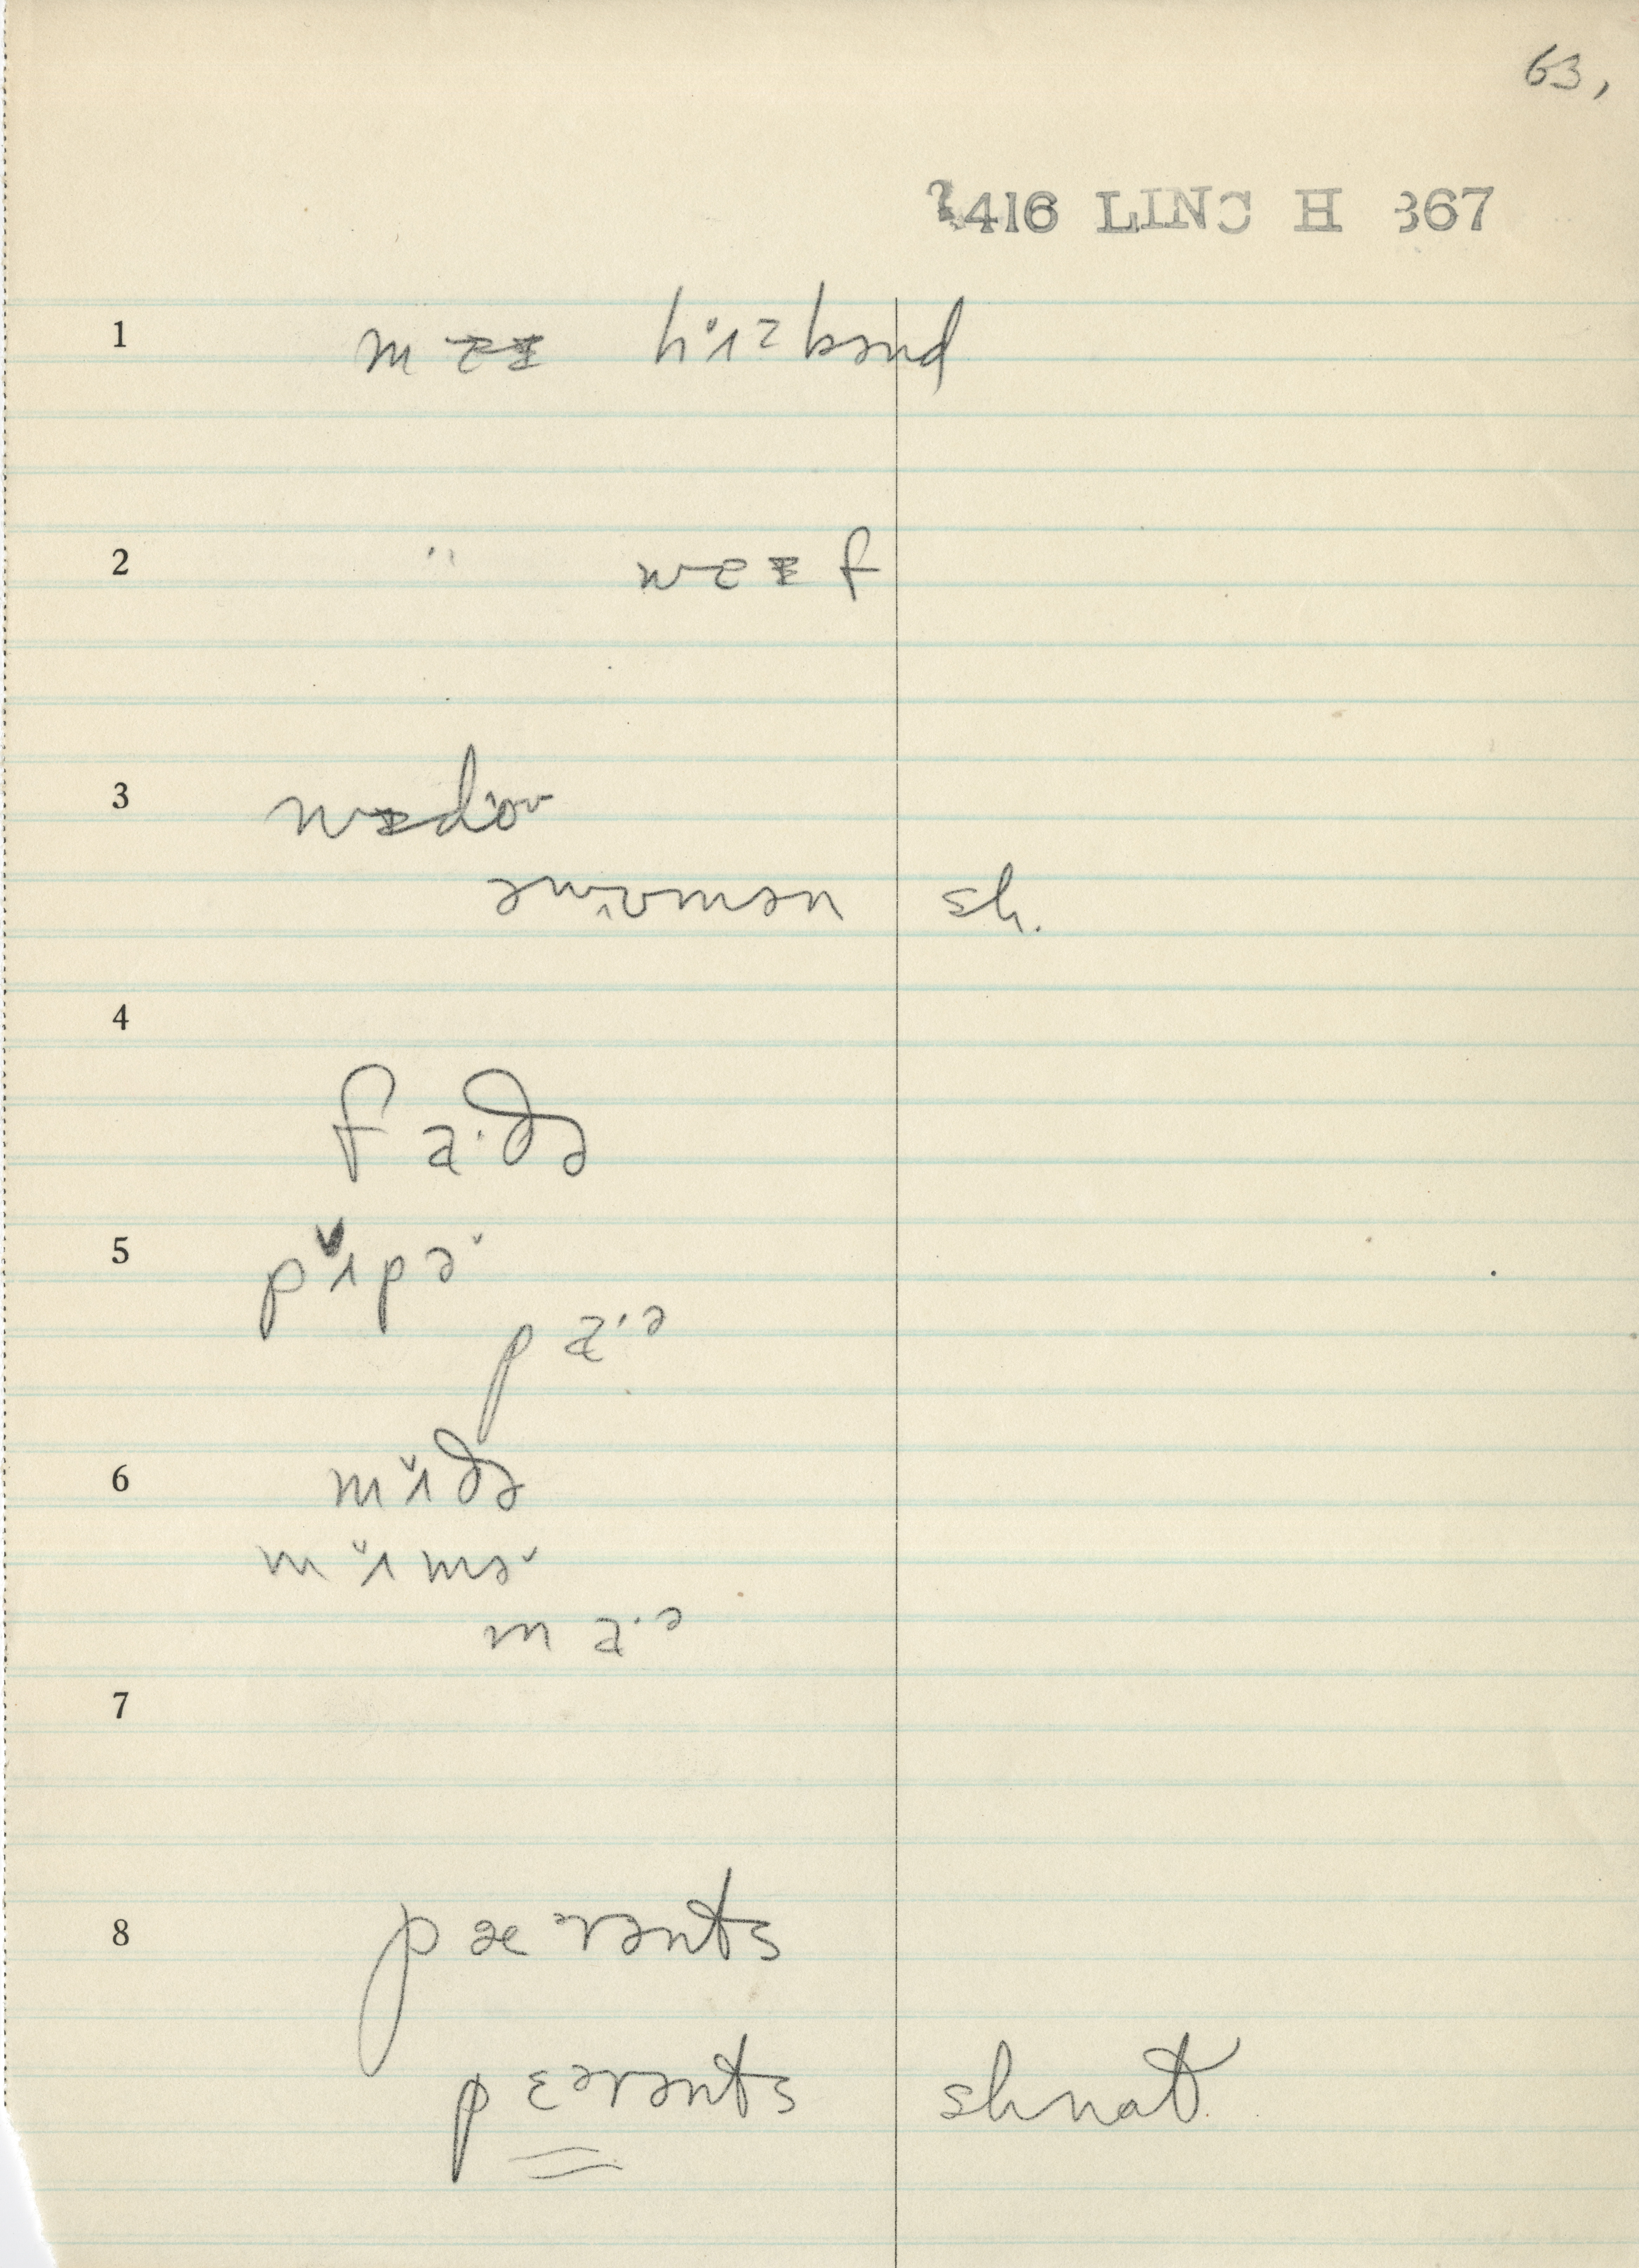 63,
2416 LINC H 367
1 mɐɪ hʌzbənd
2 " wɐɪf
3 wɪdoʊ
əwʊmən sh.
4
fa·ðə
5 pʌ̌pə̌
pa·ə
6 mʌ̌ðə
mʌ̌mə̌
ma·ə
7
8 pæᵊrənts
pɛᵊrənts shnat.